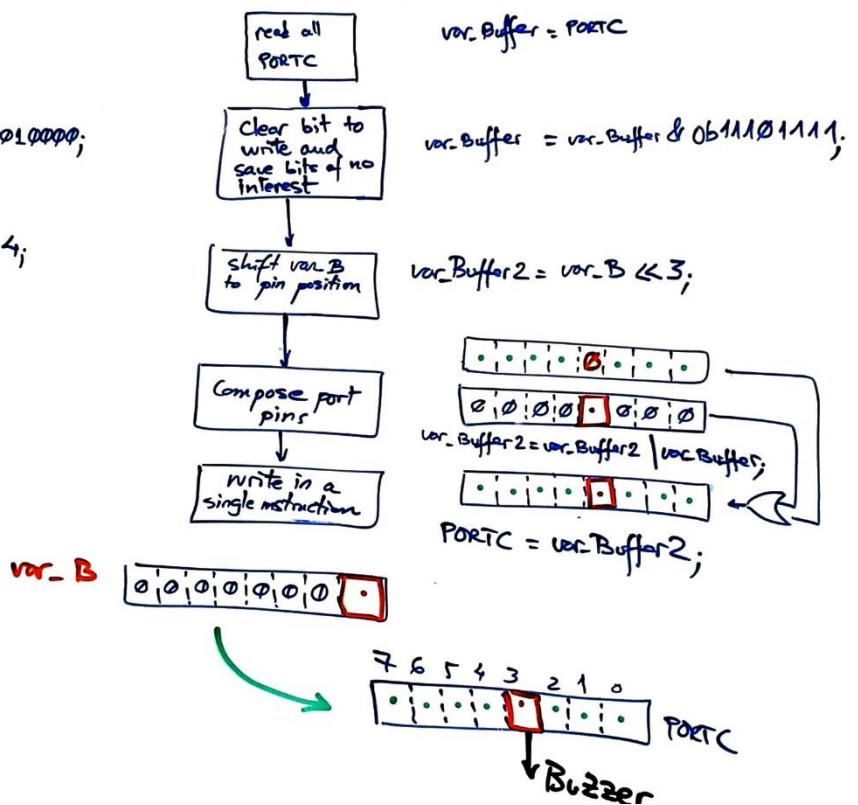 read all
PORTC
var_Buffer = PORTC
Ø1ØØØØ;
Clear bit to
write and
save bits of no
interest
var_Buffer = var_Buffer & 0b111Ø1111;
4;
shift var_B
to pin position
var_Buffer2 = var_B << 3;
Ø
Compose port
pins
Ø Ø Ø Ø Ø Ø Ø
var_Buffer2 = var_Buffer2 | var_Buffer;
write in a
single instruction
PORTC = var_Buffer2;
var_B
Ø Ø Ø Ø Ø Ø Ø
7 6 5 4 3 2 1 0
PORTC
Buzzer